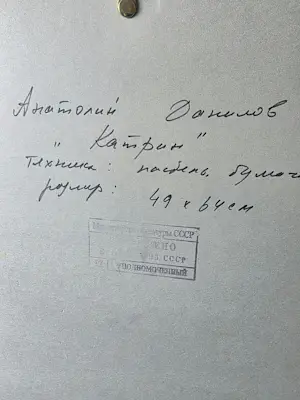 Анатолий Данилов
„Катрин"
техника: пастель, бумаг
размер: 49 x 64 см
СССР
СССР
УПОЛНОМОЧЕННЫЙ